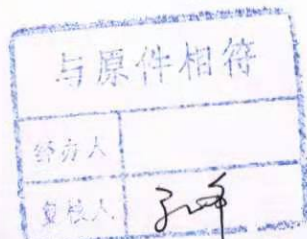 与原件相符
经办人
复核人